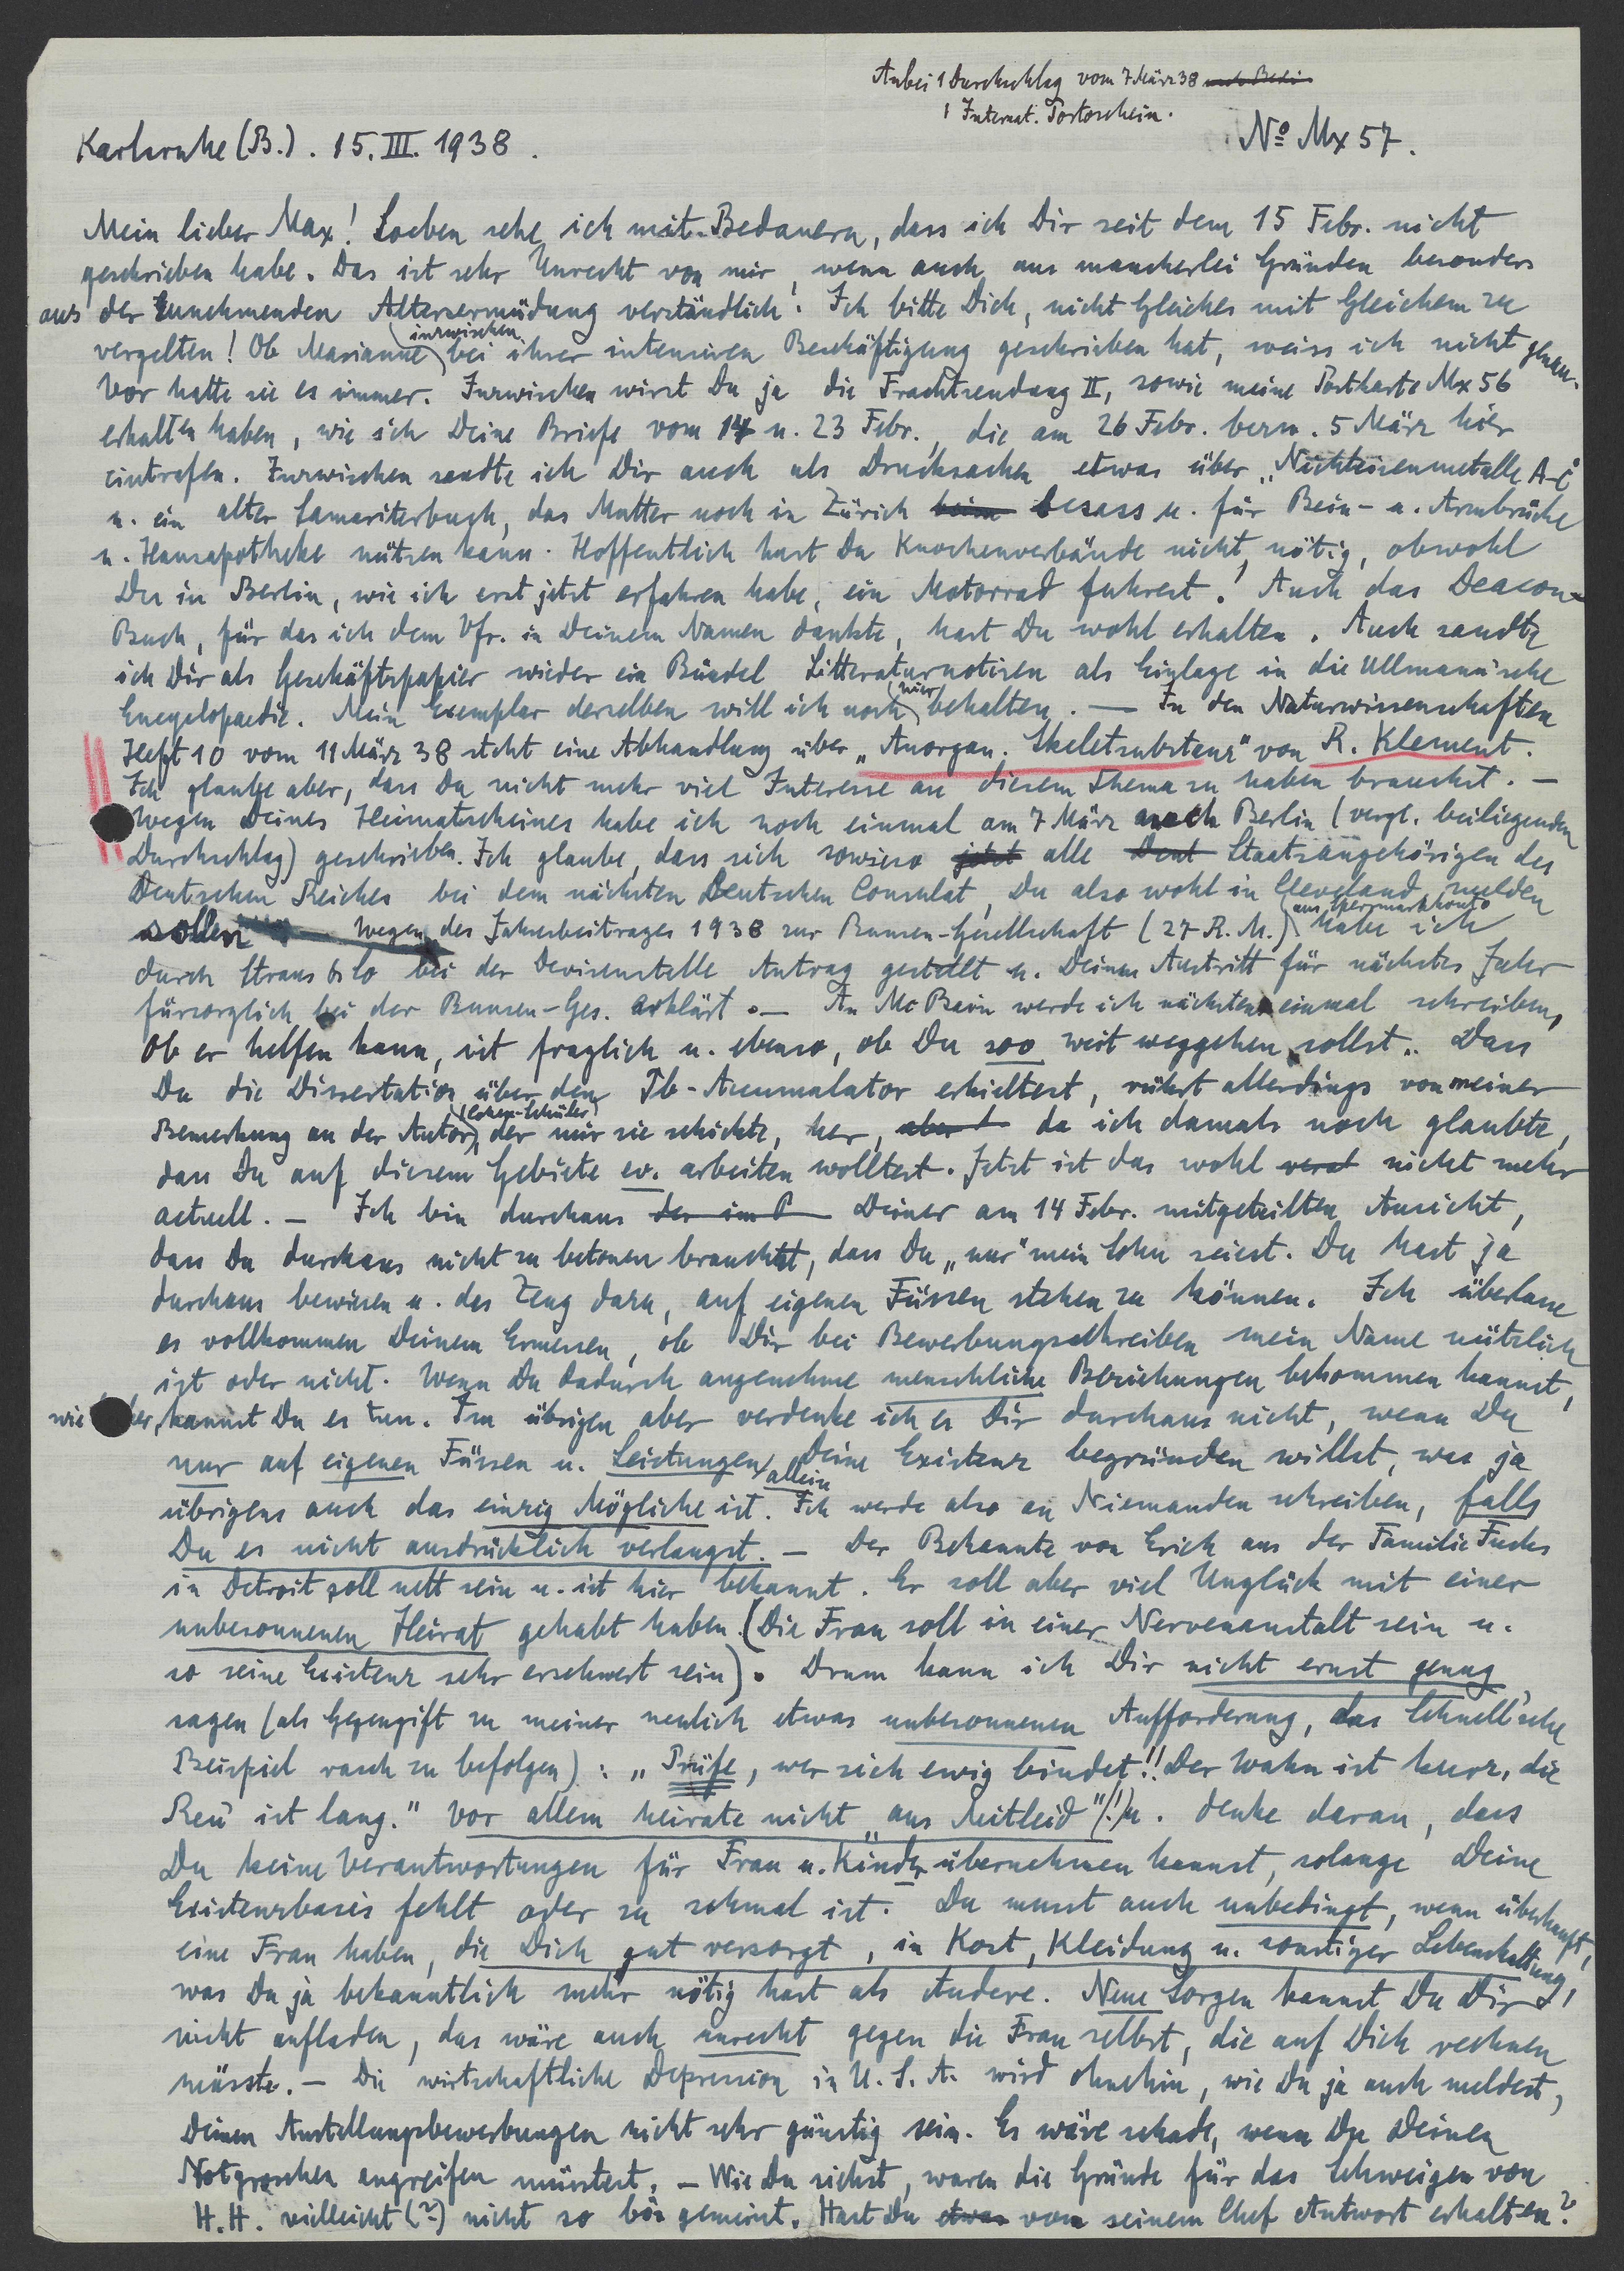 Anbei 1 Durchschlag vom 7 März 38 nach Berlin
1 Internat. Portoschein.
Karlsruhe (B.). 15. III. 1938.
No Mx 57.
Mein lieber Max! Soeben sehe ich mit Bedauern, dass ich Dir seit dem 15 Febr. nicht
geschrieben habe. Das ist sehr Unrecht von mir, wenn auch aus mancherlei Gründen besonders
aus der zunehmenden Altersermüdung verständlich! Ich bitte Dich, nicht Gleiches mit Gleichem zu
vergelten! Ob Marianne inzwischen bei ihrer intensiven Beschäftigung geschrieben hat, weiss ich nicht genau.
Vor hatte sie es immer. Inzwischen wirst Du ja die Frachtsendung II, sowie meine Postkarte Mx 56
erhalten haben, wie ich Deine Briefe vom 14 u. 23 Febr., die am 26 Febr. bezw. 5 März hier
eintrafen. Inzwischen sandte ich Dir auch als Drucksachen etwas über „Nichteisenmetalle A-C"
u. ein altes Samariterbuch, das Mutter noch in Zürich beim besass u. für Bein- u. Armbrüche
u. Hausapotheke nützen kann. Hoffentlich hast Du Knochenverbände nicht nötig, obwohl
Du in Berlin, wie ich erst jetzt erfahren habe, ein Motorrad fuhrest! Auch das Deacon-
Buch, für das ich dem Vfr. in Deinem Namen dankte, hast Du wohl erhalten. Auch sandte
ich Dir als Geschäftspapier wieder ein Bündel Litteraturnotizen als Einlage in die Ullmannsche
Encyclopaedie. Mein Exemplar derselben will ich noch hier behalten. — In den Naturwissenschaften
Heft 10 vom 11 März 38 steht eine Abhandlung über „Anorgan. Skeletsubstanz" von R. Klement.
Ich glaube aber, dass Du nicht mehr viel Interesse an diesem Thema zu haben brauchst. —
Wegen Deines Heimatscheines habe ich noch einmal am 7 März nach Berlin (vergl. beiliegenden
Durchschlag) geschrieben. Ich glaube, dass sich sowieso jetzt alle Deut Staatsangehörigen des
Deutschen Reiches bei dem nächsten Deutschen Consulat, Du also wohl in Cleveland, melden
sollen. Wegen des Jahresbeitrages 1938 zur Bunsen-Gesellschaft (27 R.M.) aus Sperrmarkkonto habe ich
durch Straus & Co bei der Devisenstelle Antrag gestellt u. Deinen Austritt für nächstes Jahr
fürsorglich bei der Bunsen-Ges. erklärt. — An Mc Bain werde ich nächstens einmal schreiben,
Ob er helfen kann, ist fraglich u. ebenso, ob Du soo weit weggehen sollst. Dass
Du die Dissertation über den Pb-Accumulator erhieltest, rührt allerdings von meiner
Bemerkung an den Autor, der mir sie schickte, her, aber da ich damals noch glaubte,
dass Du auf diesem Gebiete ev. arbeiten wolltest. Jetzt ist das wohl nicht mehr
actuell. — Ich bin durchaus der im Deiner am 14 Febr. mitgeteilten Ansicht,
dass Du durchaus nicht zu betonen brauchst, dass Du „nur" mein Sohn seiest. Du hast ja
durchaus bewiesen u. das Zeug dazu, auf eigenen Füssen stehen zu können. Ich überlasse
es vollkommen Deinem Ermessen, ob Dir bei Bewerbungsschreiben mein Name nützlich
ist oder nicht. Wenn Du dadurch angenehme menschliche Beziehungen bekommen kannst,
wie kannst Du es tun. Im übrigen aber verdenke ich es Dir durchaus nicht, wenn Du
nur auf eigenen Füssen u. Leistungen allein Deine Existenz begründen willst, was ja
übrigens auch das einzig Mögliche ist. Ich werde also an Niemanden schreiben, falls
Du es nicht ausdrücklich verlangst. — Der Bekannte von Erich aus der Familie Fuchs
in Detroit soll nett sein u. ist hier bekannt. Er soll aber viel Unglück mit einer
unbesonnenen Heirat gehabt haben. (Die Frau soll in einer Nervenanstalt sein u.
so seine Existenz sehr erschwert sein). Drum kann ich Dir nicht ernst genug
sagen (als Gegengift zu meiner neulich etwas unbesonnenen Aufforderung, das Schnell'sche
Beispiel rasch zu befolgen): „Prüfe, wer sich ewig bindet!! Der Wahn ist kurz, die
Reu ist lang." Vor allem heirate nicht „aus Mitleid"(!) u. denke daran, dass
Du keine Verantwortungen für Frau u. Kinder übernehmen kannst, solange Deine
Existenzbasis fehlt oder zu schmal ist. Du musst auch unbedingt, wenn überhaupt,
eine Frau haben, die Dich gut versorgt, in Kost, Kleidung u. sonstiger Lebenshaltung,
was Du ja bekanntlich mehr nötig hast als Andere. Neue Sorgen kannst Du Dir
nicht aufladen, das wäre auch unrecht gegen die Frau selbst, die auf Dich rechnen
müsste. — Die wirtschaftliche Depression in U.S.A. wird ohnehin, wie Du ja auch meldest,
Deinen Anstellungsbewerbungen nicht sehr günstig sein. Es wäre schade, wenn Du Deinen
Notgroschen angreifen müsstest. — Wie Du siehst, waren die Gründe für das Schweigen von
H.H. vielleicht (?) nicht so bös gemeint. Hast Du etwas von seinem Chef Antwort erhalten?